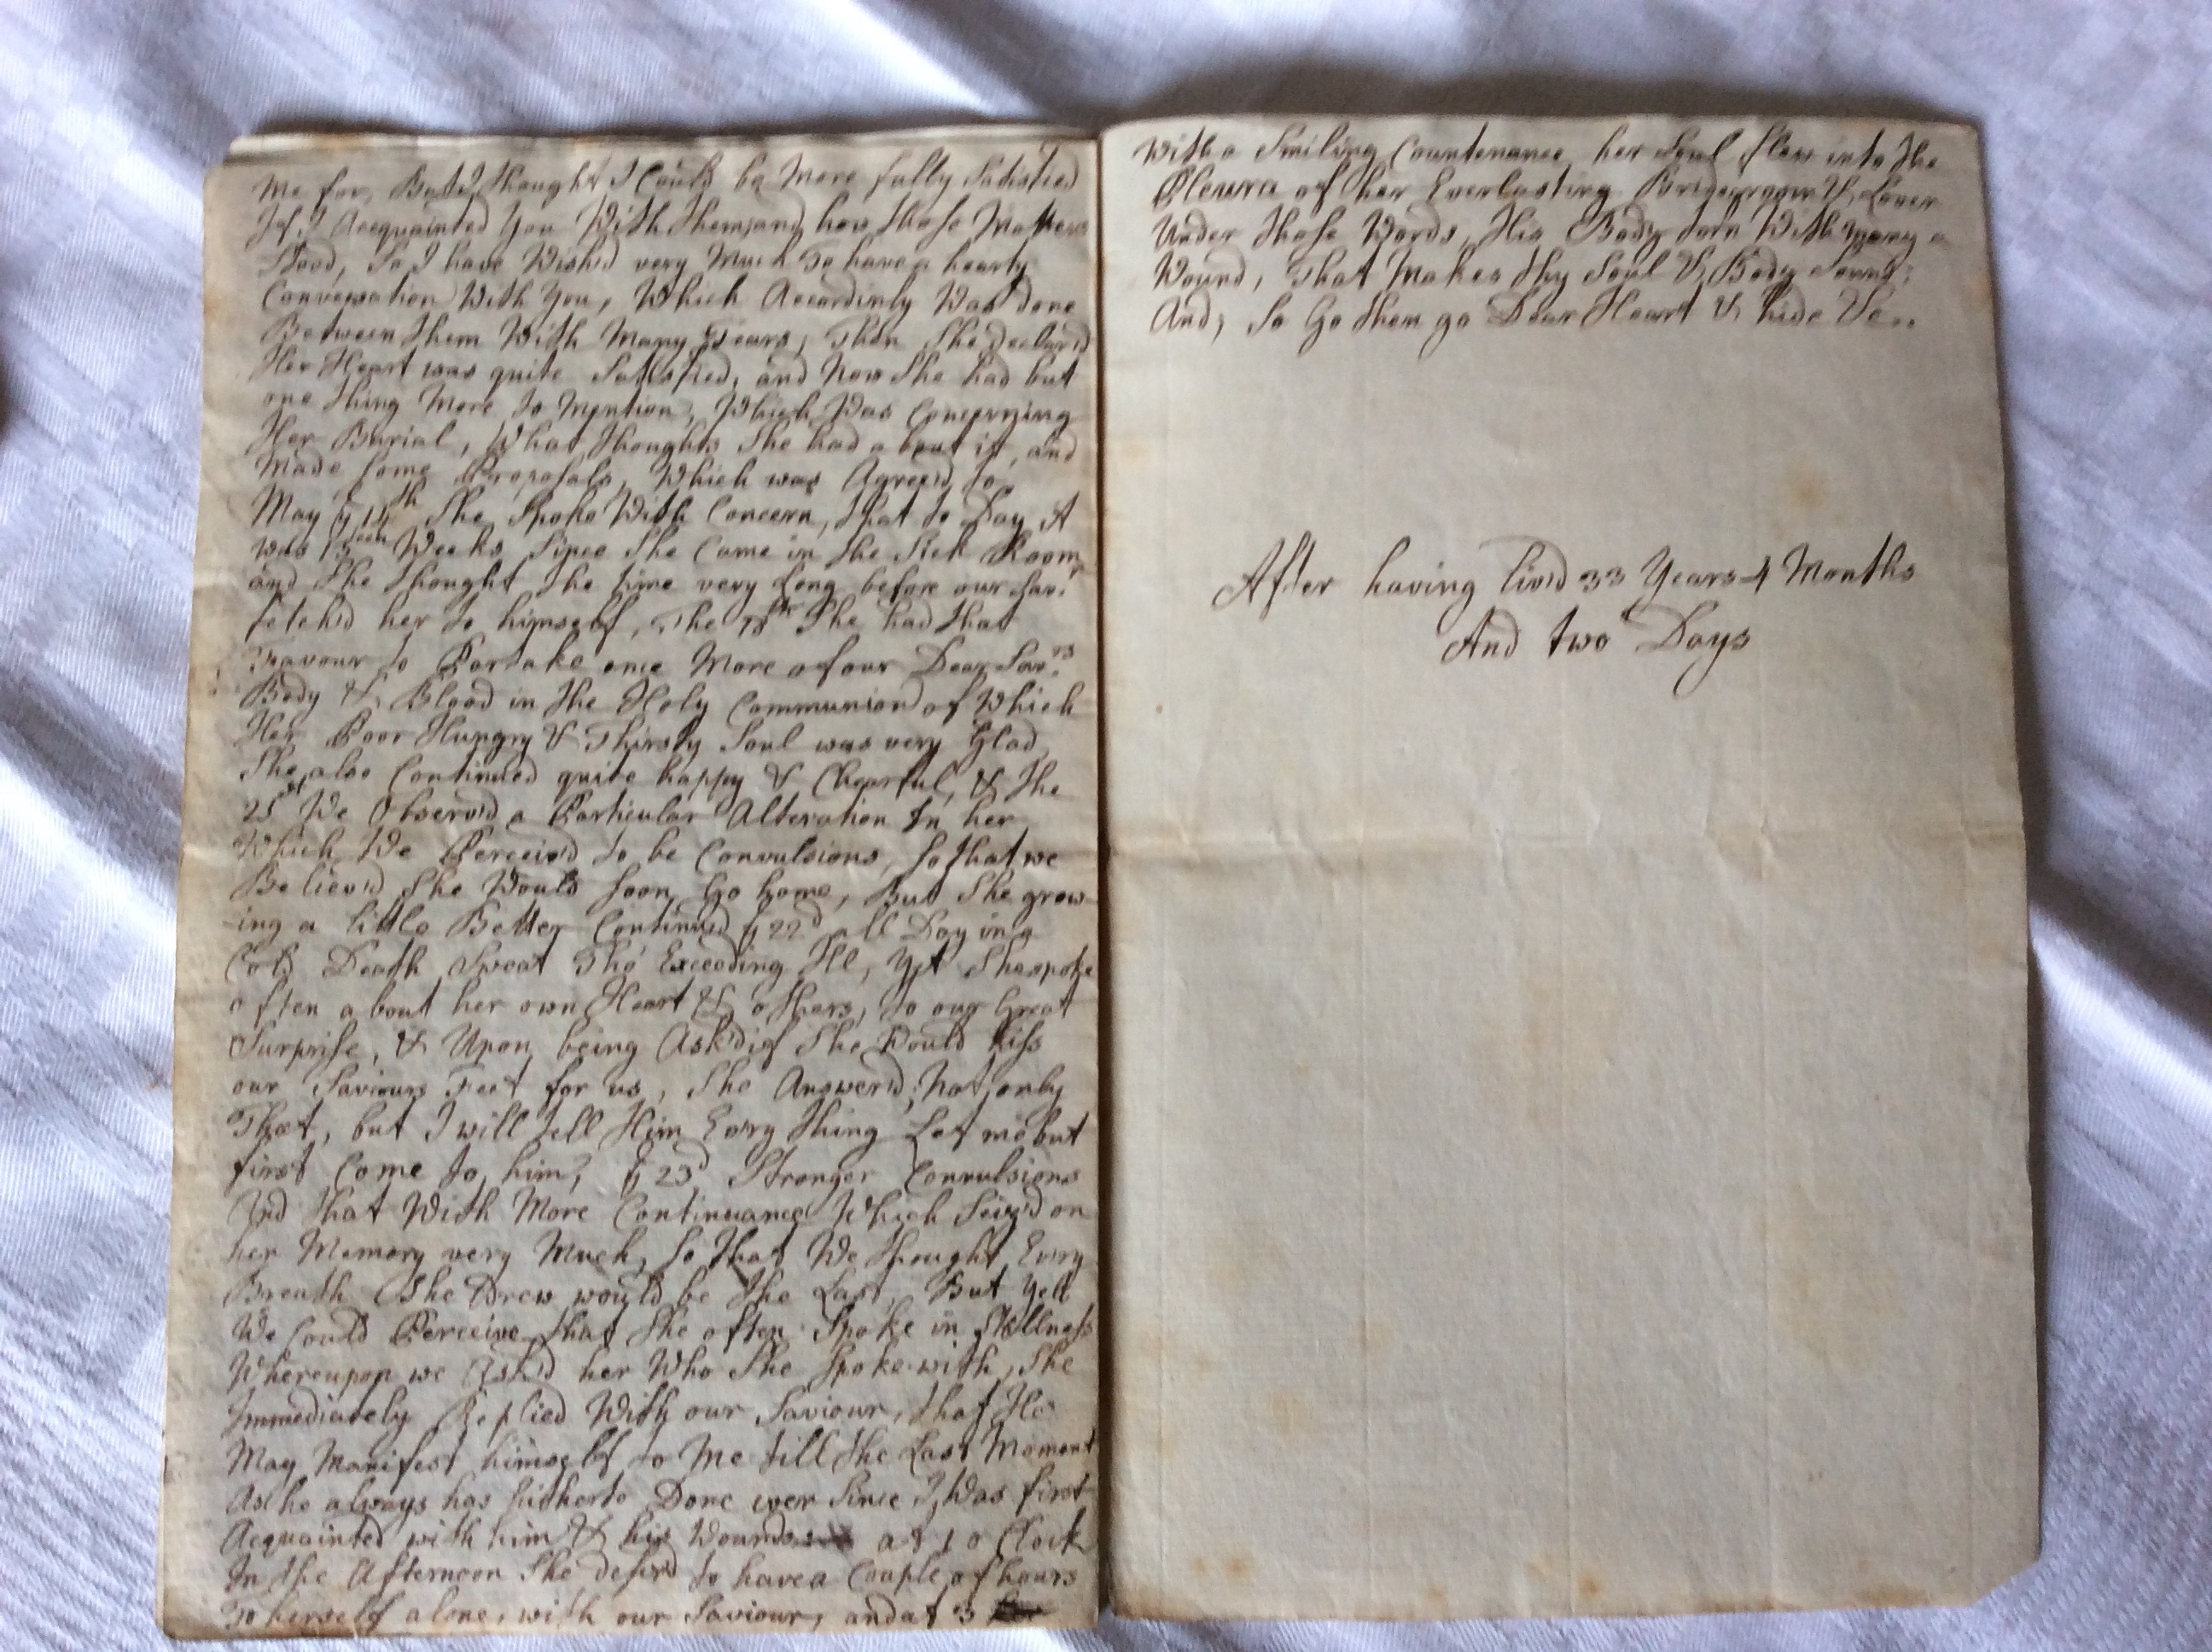 me for, But I thought I Could be More fully Satisfied
If I Acequainted You With them, and how those Matters
Stood, So I have Wish'd very Much To have a hearty
Conversation With You, Which Accordinly Was done
Between them With Many Tears, Then She declar'd
Her Heart was quite Satisfied, and Now She had but
one thing More to Mention, Which Was Concerning
Her Burial, What thoughts She had about it, and
Made Some Proposals, Which was Agreed to
May ye 14th She Spoke With Concern, that to Day it
was 15teen Weeks Since She Came in the Sick Room,
and She thought the time very Long before our Savr
fetch'd her to himself, The 18th She had that
Favour to Partake once More of our Dear Savrs
Body & Blood in the Holy Communion of Which
Her Poor Hungry & Thirsty Soul was very Glad
She also Continued quite happy & Chearful, & the
21st We Observ'd a Particular Alteration In her
Which We Perceiv'd to be Convulsions, So that we
Believ'd She Would Soon Go home, But She grow-
-ing a little Better Continued ye 22d all Day in a
Cold Death Sweat Tho' Exceeding Ill, Yet She spoke
often about her own Heart & others, to our Great
Surprise, & Upon being Ask'd if She Would Kiss
our Saviours Feet for us, She Answer'd; Not only
That, but I will tell Him Evry thing Let me but
first Come to him, ye 23d Stronger Convulsions
And that With More Continuance Which Seiz'd on
her Memory very Much, So that We thought Evry
Breath She Drew would be the Last, But Yett
We Could Perceive that She often Spoke in Stillness
Whereupon we Ask'd her Who She Spoke with, She
Immediately Replied With our Saviour, that He
May Manifest himself to Me till the Last Moment
As he always has hitherto Done ever Since I Was first
Acquainted with him & his Wounds at 1 o Clock
In the Afternoon She desir'd to have a Couple of hours
To herself alone, with our Saviour, and at 3
With a Smiling Countenance her Soul flew into the
Pleura of her Everlasting Bridegroom & Lover
Under those Words, His Body torn With many a
Wound, That Makes thy Soul & Body Sound;
And; So Go then go Dear Heart & hide &c..
After having liv'd 33 Years 4 Months
And two Days